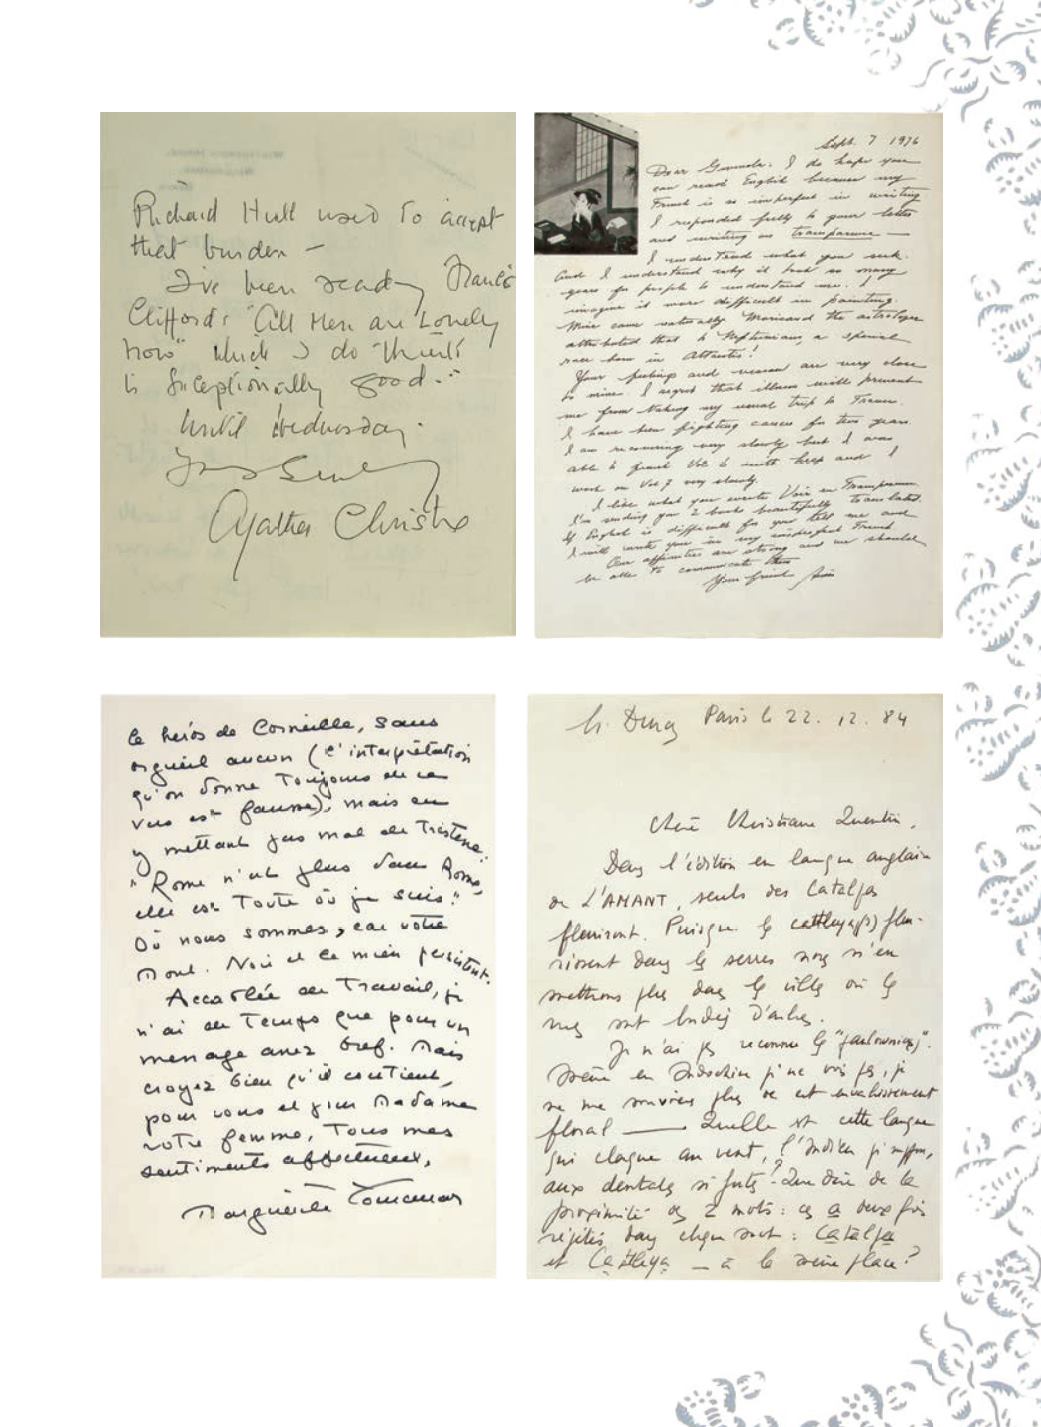 Richard Hull used to accept
that burden –
I've been reading Francis
Clifford's "All Men are Lonely
now" which I do think
is exceptionally good.
Until Wednesday.
Yours
Agatha Christie
Sept. 7 1976
Dear I do hope you
can read English because my
French is so imperfect in writing
I responded fully to your letter
and writing on transparence —
I understand what you seek.
And I understand why it took so many
years for people to understand me. I
imagine it more difficult in painting.
Mine came naturally Moricand the astrologer
attributed that to Neptunians, a special
race born in Atlantis!
Your feelings and vision are very close
to mine. I regret that illness will prevent
me from making my usual trip to France.
I have been fighting cancer for two years.
I am recovering very slowly but I was
able to finish Vol 6 with help and I
work on Vol 7 very slowly.
I like what you wrote Voir en Transparence
I'm sending you 2 books beautifully translated.
If English is difficult for you tell me and
I will write you in my imperfect French
Our affinities are strong and we should
be able to communicate
Your friend Anaïs
le héros de Corneille, sans
orgueil aucun (l'interprétation
qu'on donne toujours de ce
vers est fausse), mais en
y mettant pas mal de tristesse.
"Rome n'est plus dans Rome,
elle est toute où je suis."
Où nous sommes, car votre
Mont. Noir et le mien persistent.
Accablée de travail, je
n'ai de temps que pour un
message assez bref. Mais
croyez bien qu'il contient,
pour vous et pour Madame
votre femme, tous mes
sentiments affectueux,
Marguerite Yourcenar
Paris le 22. 12. 84
Chère Christiane Quentin,
Dans l'édition en langue anglaise
de L'AMANT, seuls des Catalpas
fleurissent. Puisque les cattleya(s) fleu-
rissent dans les serres nous n'en
mettrons plus dans les villes où les
rues sont bordées d'arbres.
Je n'ai pas reconnu les "paulownias".
Même en Indochine je ne vois pas, je
ne me souviens plus de cet envahissement
floral — Quelle est cette langue
qui claque au vent, l'Indien je suppose,
aux dentales si fortes? Que dire de la
proximité des 2 mots: ces a deux fois
répétés dans chaque mot: Catalpa
et Cattleya — à la même place?